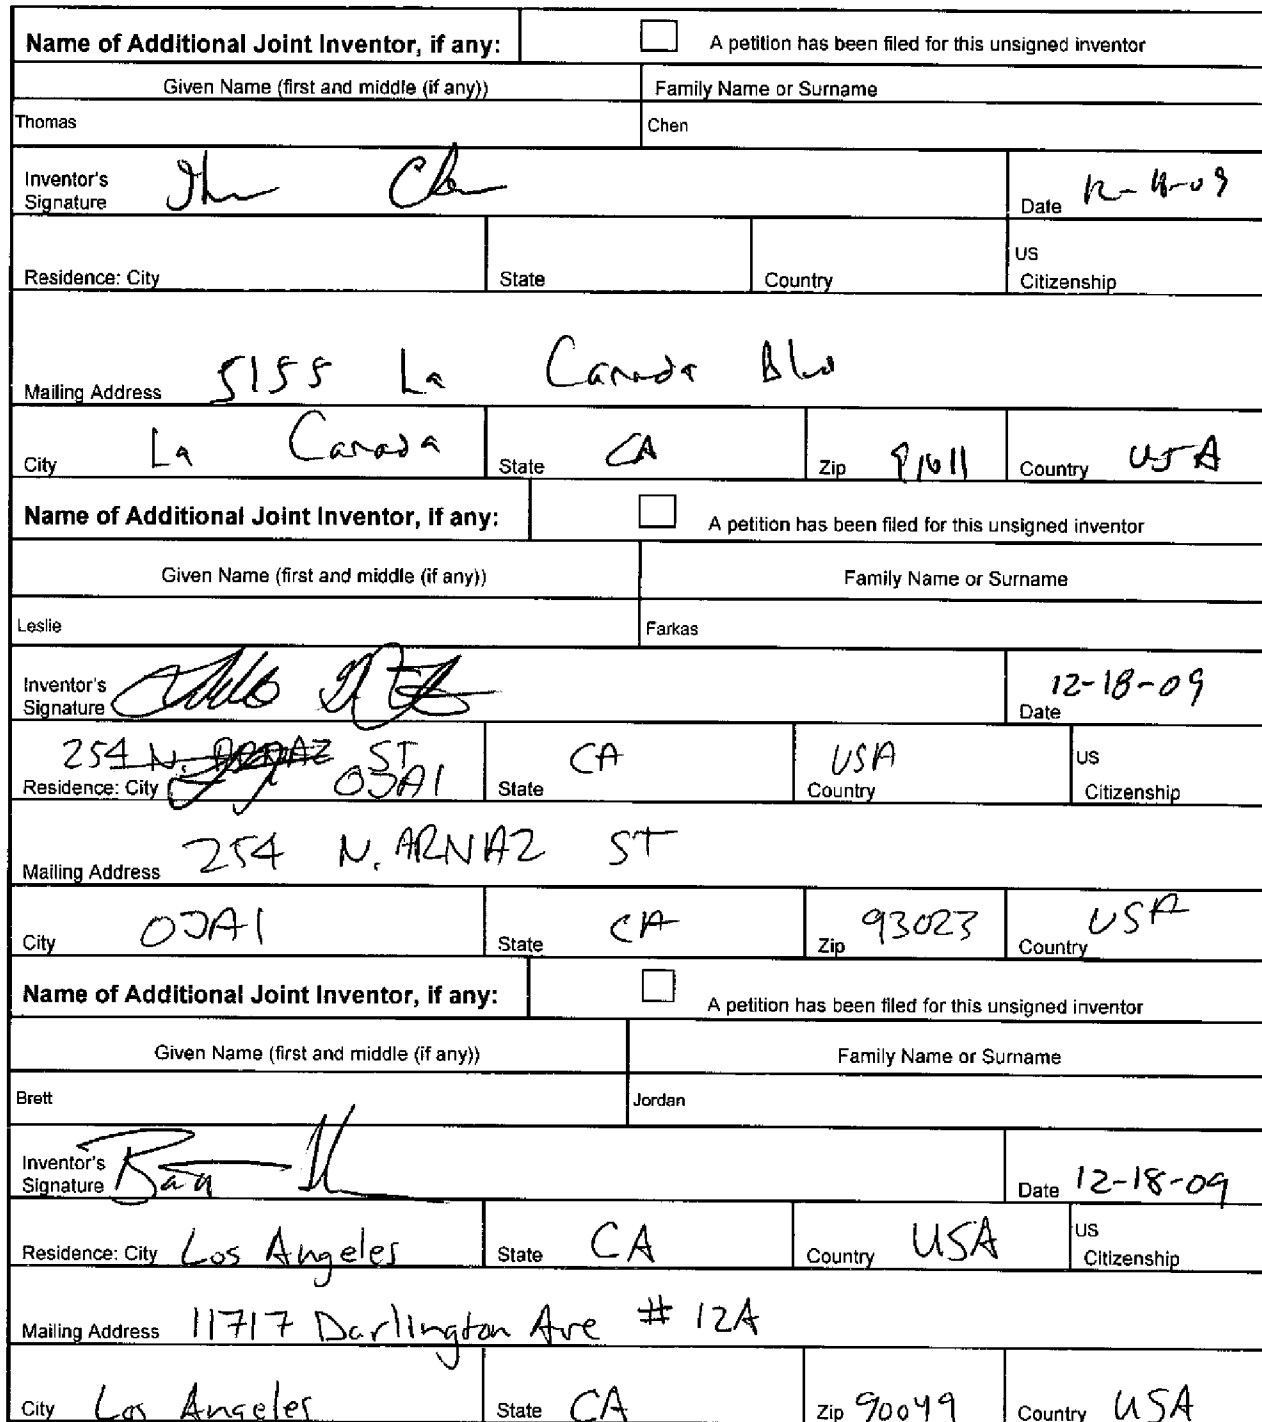 Name of Additional Joint Inventor, if any: A petition has been filed for this unsigned inventor
Given Name (first and middle (if any)) Family Name or Surname
Thomas Chen
Inventor's
Signature Date
US
Residence: City State Country Citizenship
Mailing Address 5155 La Canada Blvd
City La Canada State CA Zip 91011 Country USA
Name of Additional Joint Inventor, if any: A petition has been filed for this unsigned inventor
Given Name (first and middle (if any)) Family Name or Surname
Leslie Farkas
Inventor's 12-18-09
Signature Date
254 N. ARNAZ ST CA USA US
Residence: City OJAI State Country Citizenship
Mailing Address 254 N. ARNAZ ST
City OJAI State CA Zip 93023 Country USA
Name of Additional Joint Inventor, if any: A petition has been filed for this unsigned inventor
Given Name (first and middle (if any)) Family Name or Surname
Brett Jordan
Inventor's
Signature Date 12-18-09
US
Residence: City Los Angeles State CA Country USA Citizenship
Mailing Address 11717 Darlington Ave # 12A
City Los Angeles State CA Zip 90049 Country USA